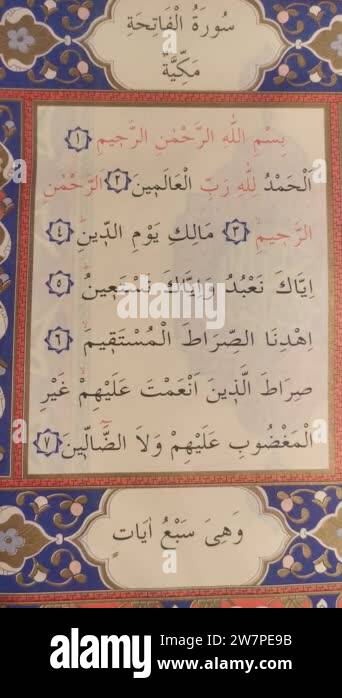 سُورَةُ الْفَاتِحَةِ
مَكِّيَّةٌ
بِسْمِ اللّٰهِ الرَّحْمٰنِ الرَّحٖيمِ ﴿١﴾
اَلْحَمْدُ لِلّٰهِ رَبِّ الْعَالَمٖينَ ﴿٢﴾ اَلرَّحْمٰنِ
الرَّحٖيمِ ﴿٣﴾ مَالِكِ يَوْمِ الدّٖينِ ﴿٤﴾
اِيَّاكَ نَعْبُدُ وَاِيَّاكَ نَسْتَعٖينُ ﴿٥﴾
اِهْدِنَا الصِّرَاطَ الْمُسْتَقٖيمَ ﴿٦﴾
صِرَاطَ الَّذٖينَ اَنْعَمْتَ عَلَيْهِمْ غَيْرِ
الْمَغْضُوبِ عَلَيْهِمْ وَلَا الضَّٓالّٖينَ ﴿٧﴾
وَهِىَ سَبْعُ اٰيَاتٍ
alamy
Image ID: 2W7PE9B
www.alamy.com